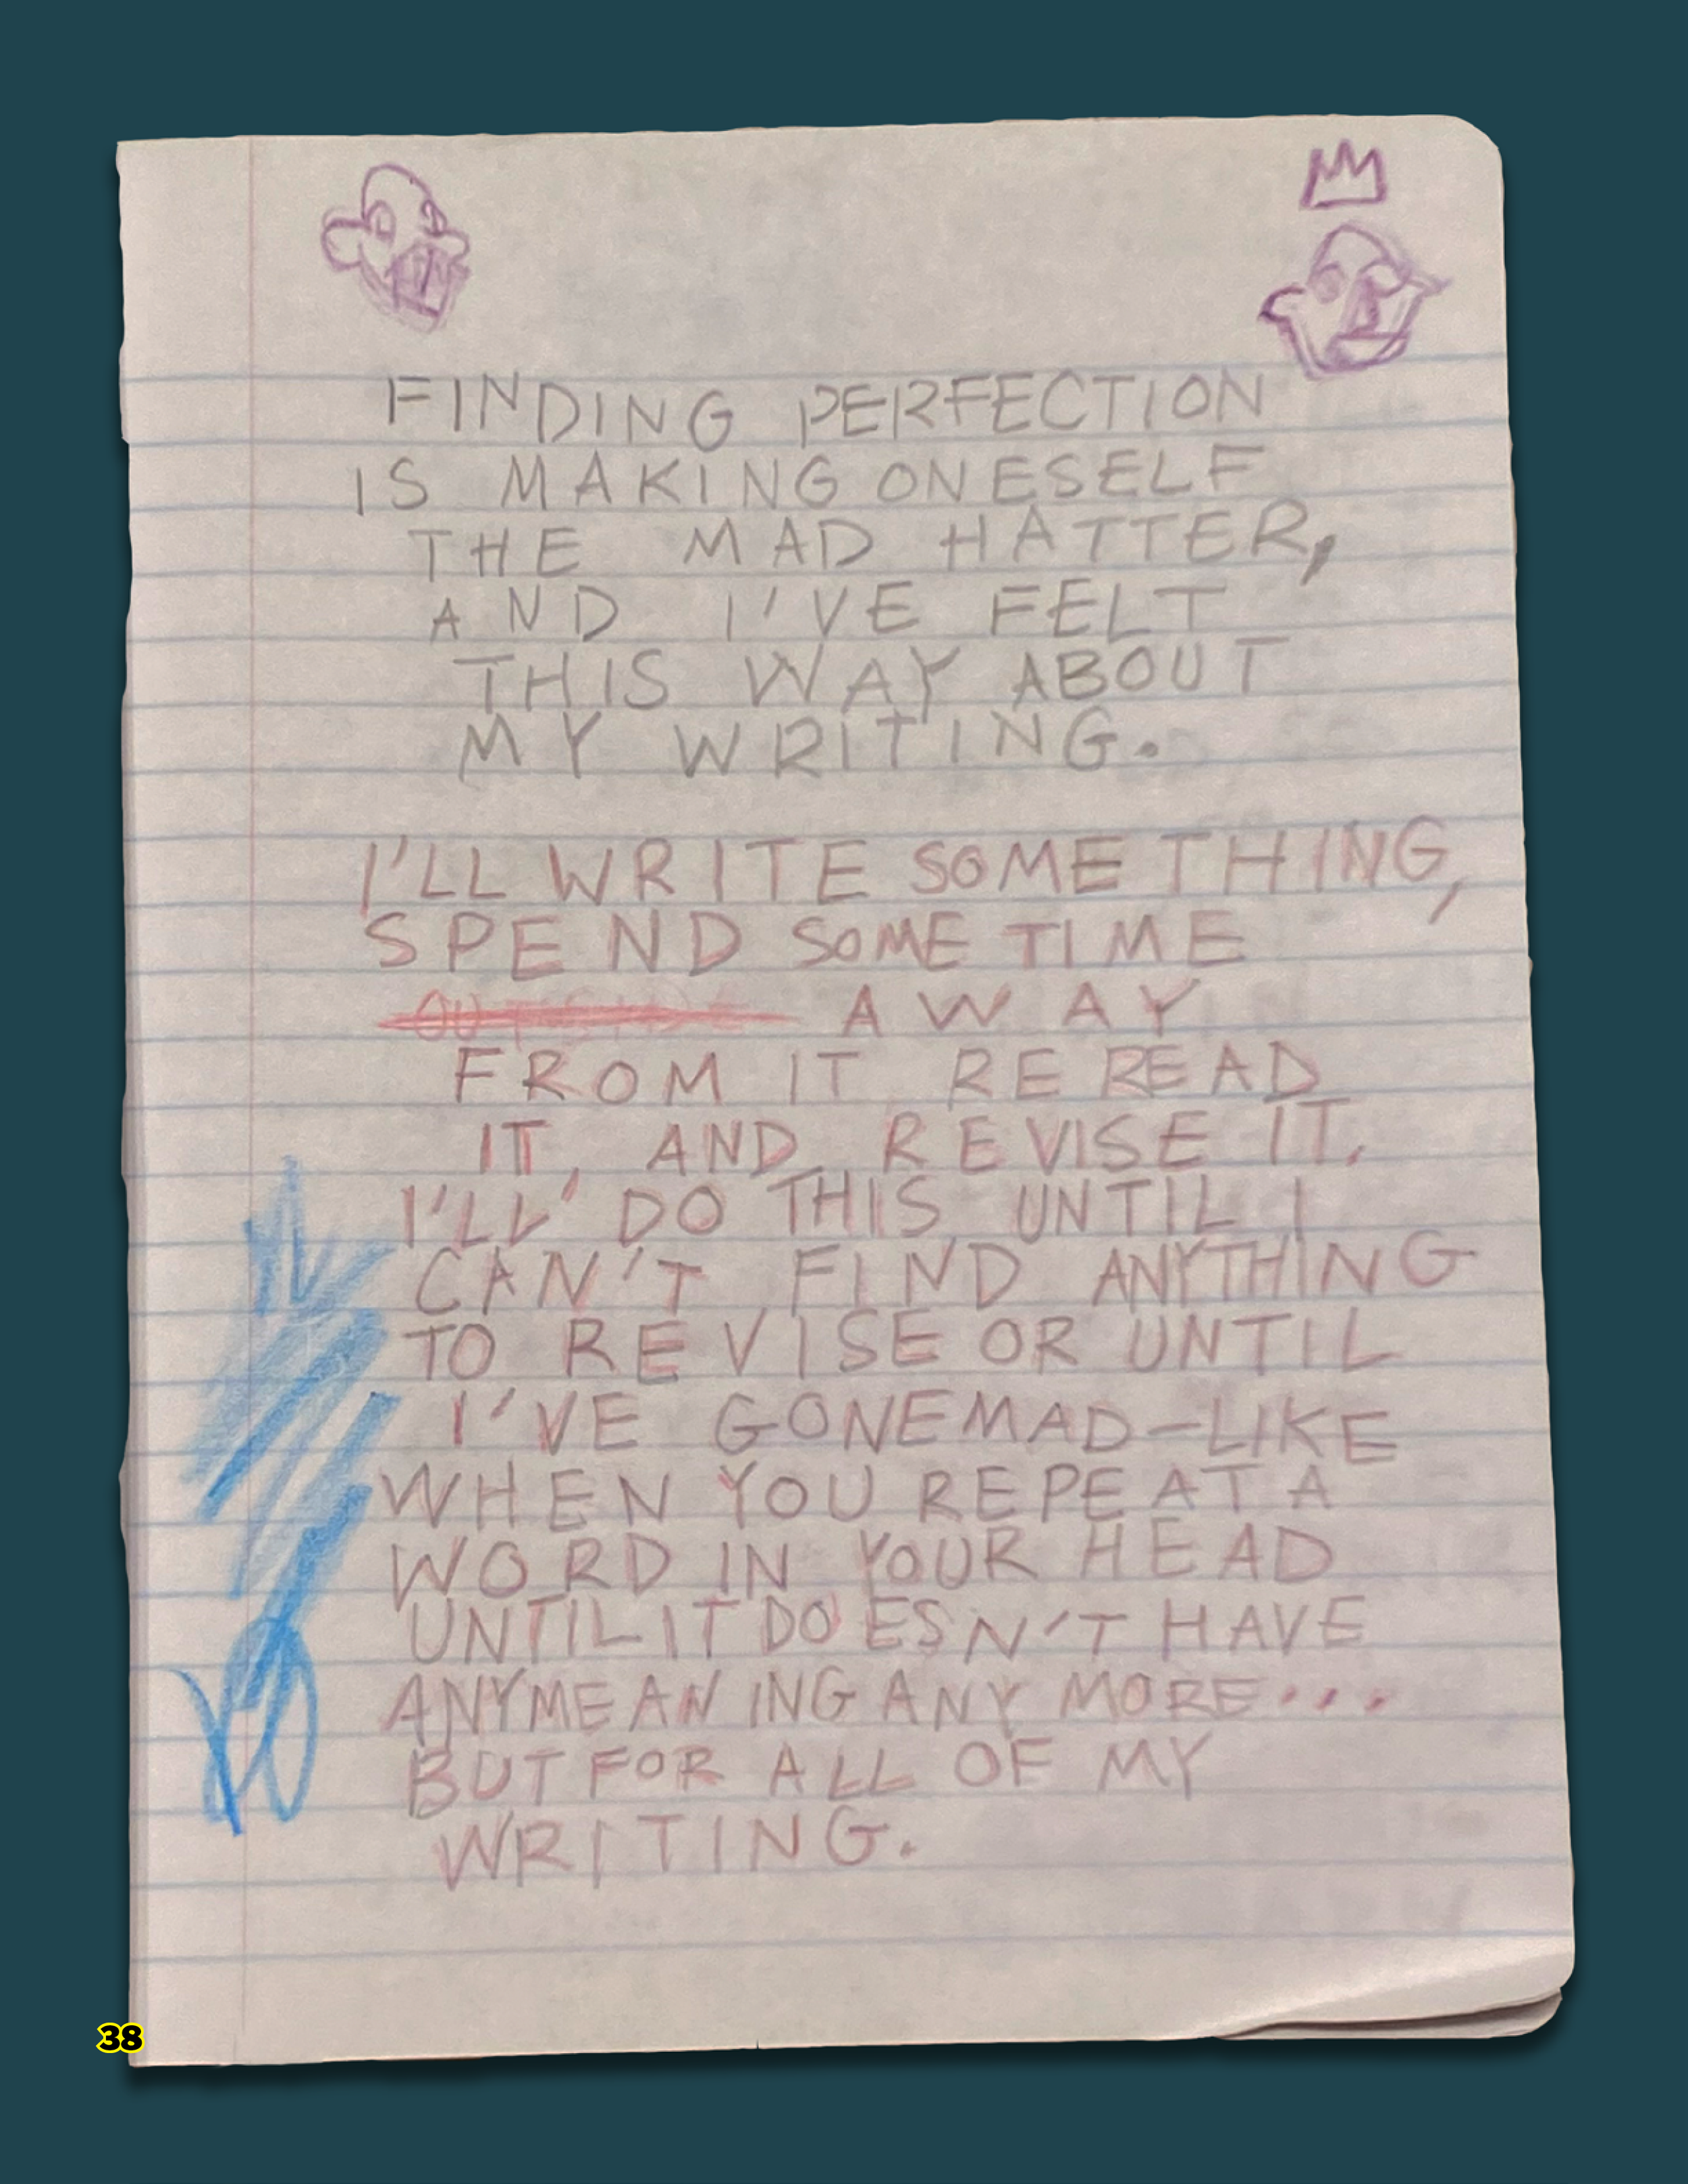 FINDING PERFECTION
IS MAKING ONESELF
THE MAD HATTER,
AND I'VE FELT
THIS WAY ABOUT
MY WRITING.
I'LL WRITE SOMETHING,
SPEND SOME TIME
AWAY
FROM IT REREAD
IT, AND REVISE IT.
I'LL DO THIS UNTIL I
CAN'T FIND ANYTHING
TO REVISE OR UNTIL
I'VE GONE MAD-LIKE
WHEN YOU REPEAT A
WORD IN YOUR HEAD
UNTIL IT DOESN'T HAVE
ANY MEANING ANY MORE...
BUT FOR ALL OF MY
WRITING.
38